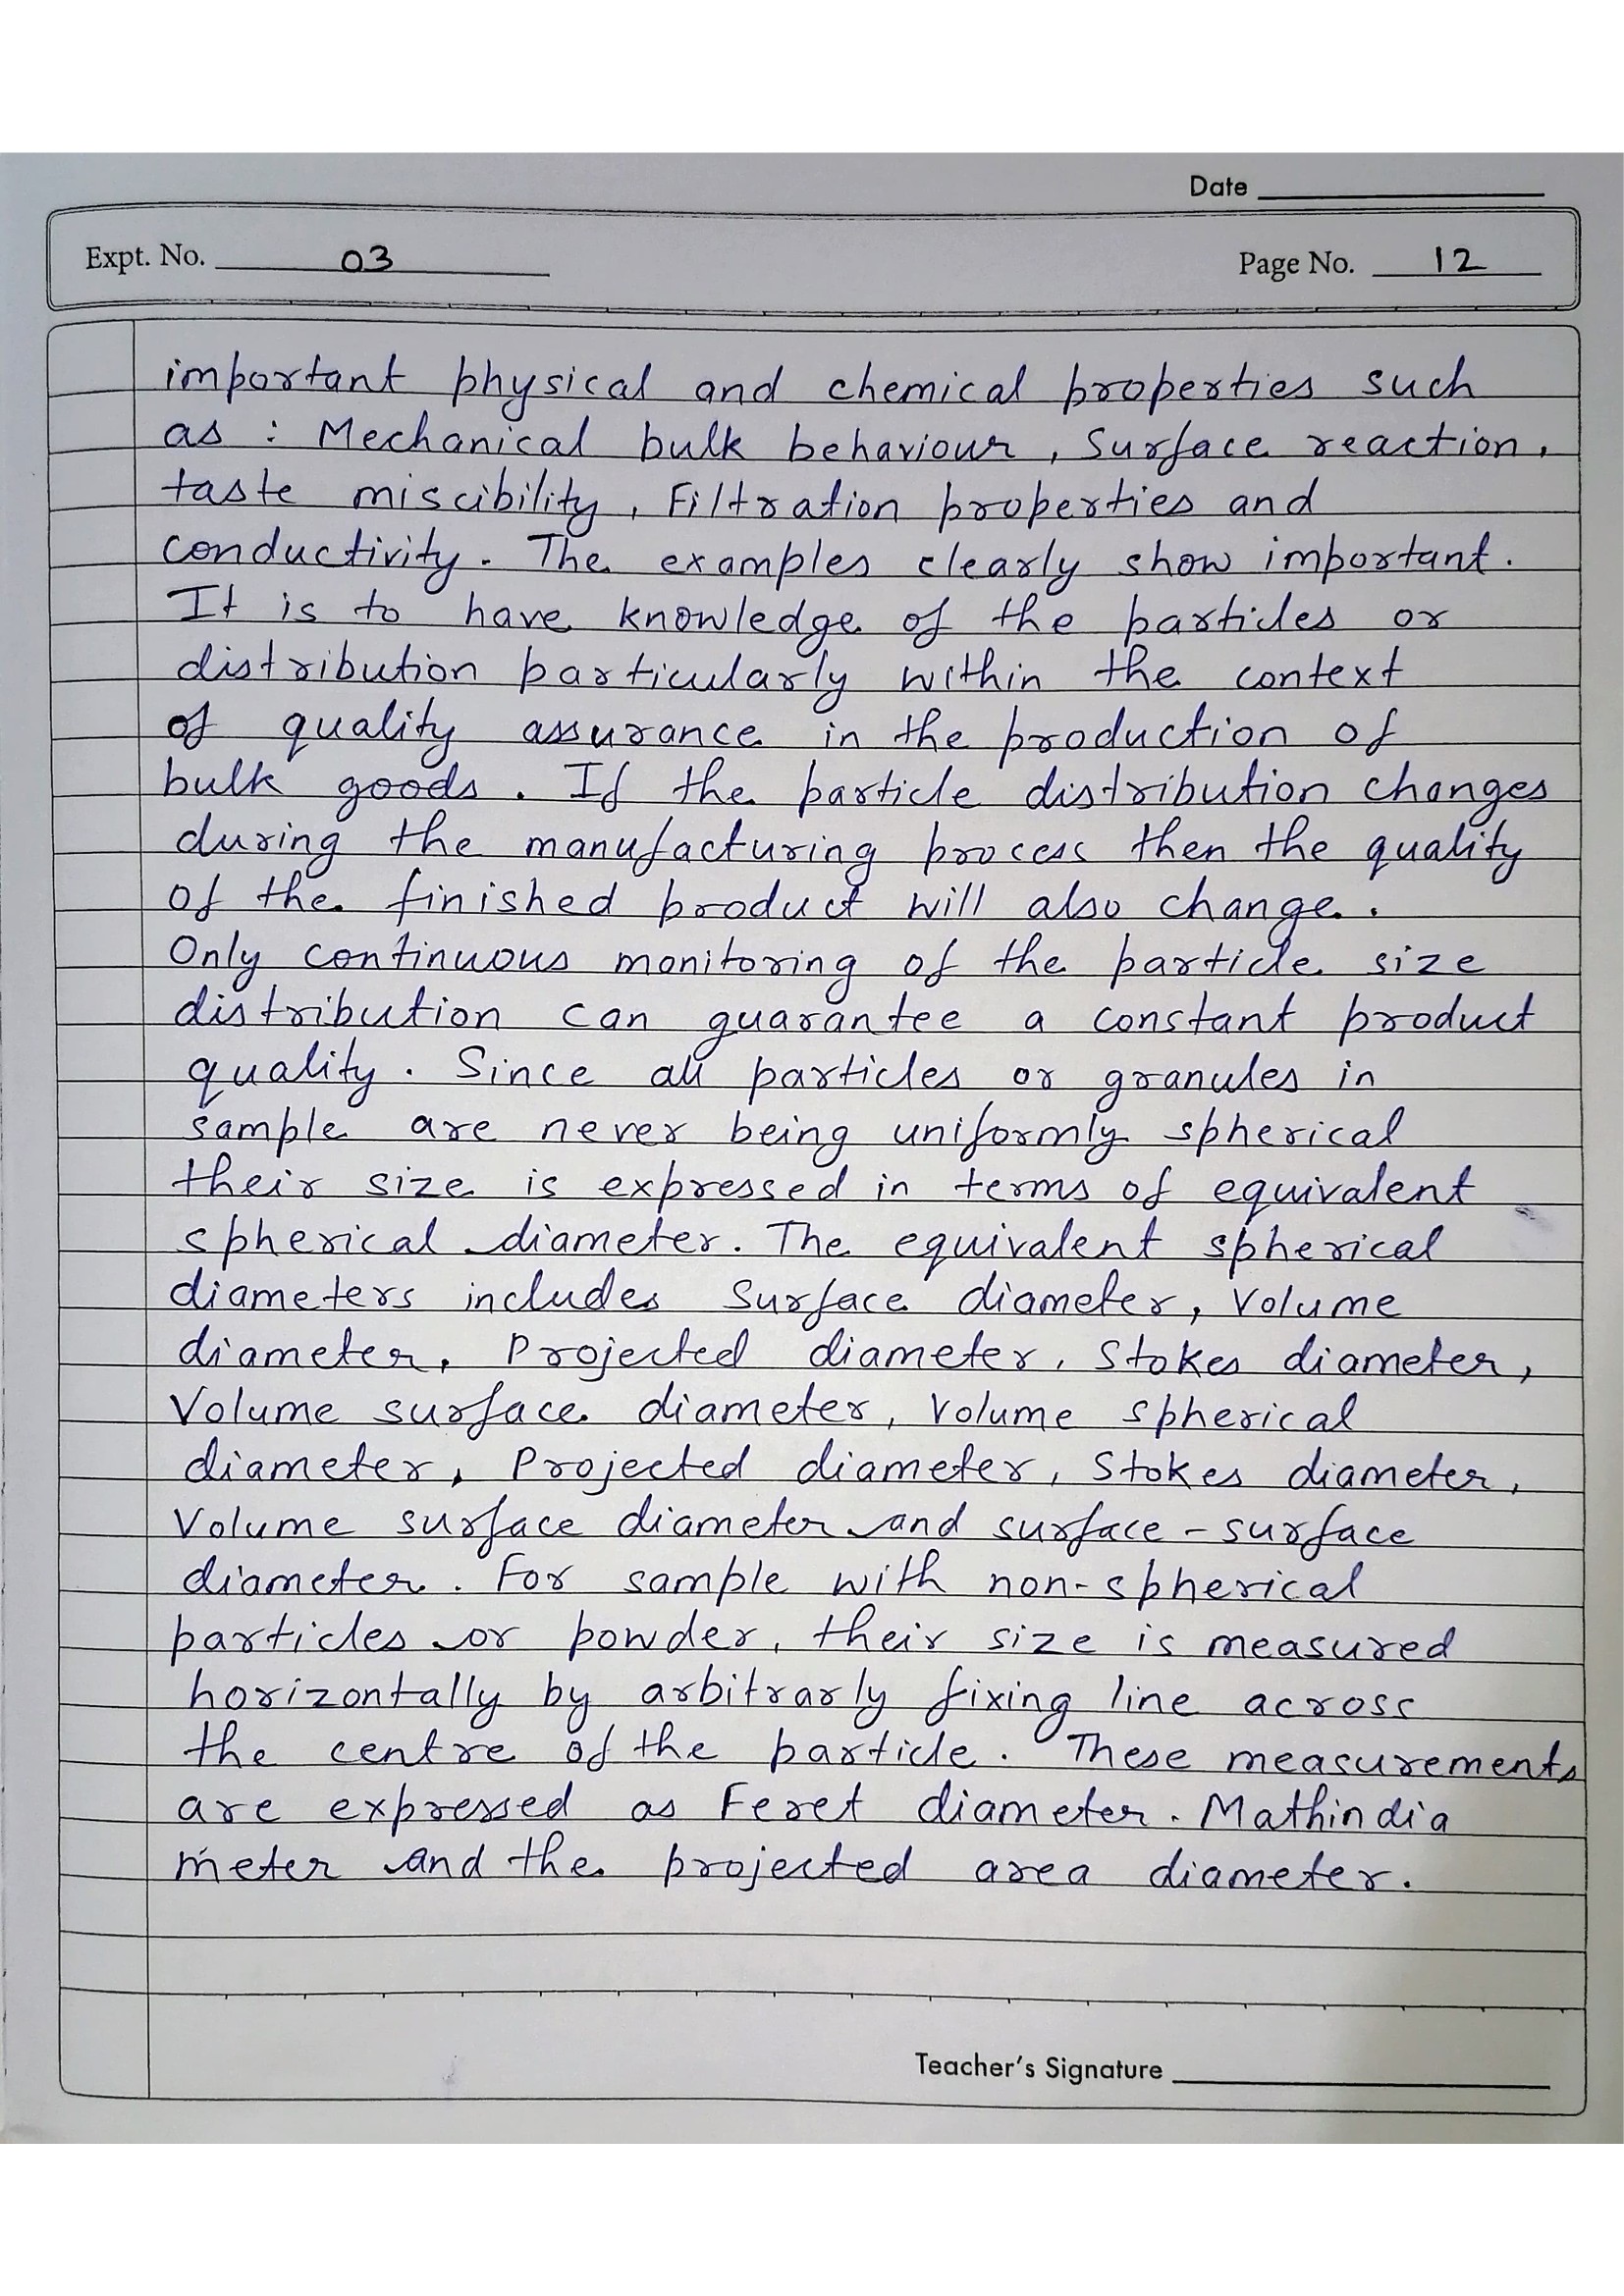 Date
Expt. No. 03 Page No. 12
important physical and chemical properties such
as : Mechanical bulk behaviour, Surface reaction,
taste miscibility, Filtration properties and
conductivity. The examples clearly show important.
It is to have knowledge of the particles or
distribution particularly within the context
of quality assurance in the production of
bulk goods. If the particle distribution changes
during the manufacturing process then the quality
of the finished product will also change.
Only continuous monitoring of the particle size
distribution can guarantee a constant product
quality. Since all particles or granules in
sample are never being uniformly spherical
their size is expressed in terms of equivalent
spherical diameter. The equivalent spherical
diameters includes Surface diameter, Volume
diameter, Projected diameter, Stokes diameter,
Volume surface diameter, Volume spherical
diameter, Projected diameter, Stokes diameter,
Volume surface diameter and surface-surface
diameter. For sample with non-spherical
particles or powder, their size is measured
horizontally by arbitrarly fixing line across
the centre of the particle. These measurements
are expressed as Feret diameter. Mathin dia
meter and the projected area diameter.
Teacher's Signature